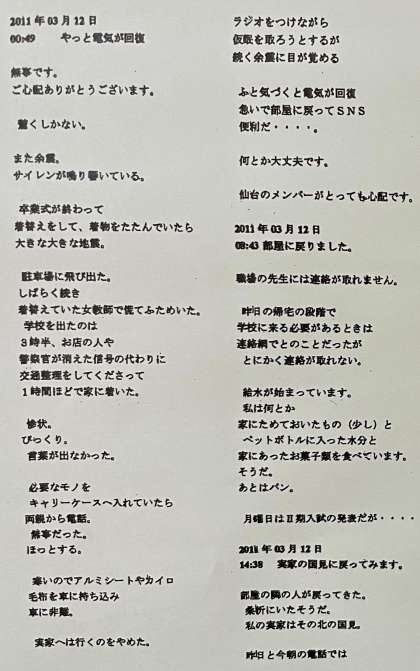 2011年03月12日
00:49　やっと電気が回復
無事です。
ご心配ありがとうございます。
驚くしかない。
また余震。
サイレンが鳴り響いている。
卒業式が終わって
着替えをして、着物をたたんでいたら
大きな大きな地震。
駐車場に飛び出た。
しばらく続き
着替えていた女教師で慌てふためいた。
学校を出たのは
３時半、お店の人や
警察官が消えた信号の代わりに
交通整理をしてくださって
１時間ほどで家に着いた。
惨状。
びっくり。
言葉が出なかった。
必要なモノを
キャリーケースへ入れていたら
両親から電話。
無事だった。
ほっとする。
寒いのでアルミシートやカイロ
毛布を車に持ち込み
車に非難。
実家へは行くのをやめた。
ラジオをつけながら
仮眠を取ろうとするが
続く余震に目が覚める
ふと気づくと電気が回復
急いで部屋に戻ってＳＮＳ
便利だ・・・・。
何とか大丈夫です。
仙台のメンバーがとっても心配です。
2011年03月12日
08:43 部屋に戻りました。
職場の先生には連絡が取れません。
昨日の帰宅の段階で
学校に来る必要があるときは
連絡網でとのことだったが
とにかく連絡が取れない。
給水が始まっています。
私は何とか
家にためておいたもの（少し）と
ペットボトルに入った水分と
家にあったお菓子類を食べています。
そうだ。
あとはパン。
月曜日はⅡ期入試の発表だが・・・・
2011年03月12日
14:38　実家の国見に戻ってみます。
部屋の隣の人が戻ってきた。
桑折にいたそうだ。
私の実家はその北の国見。
昨日と今朝の電話では